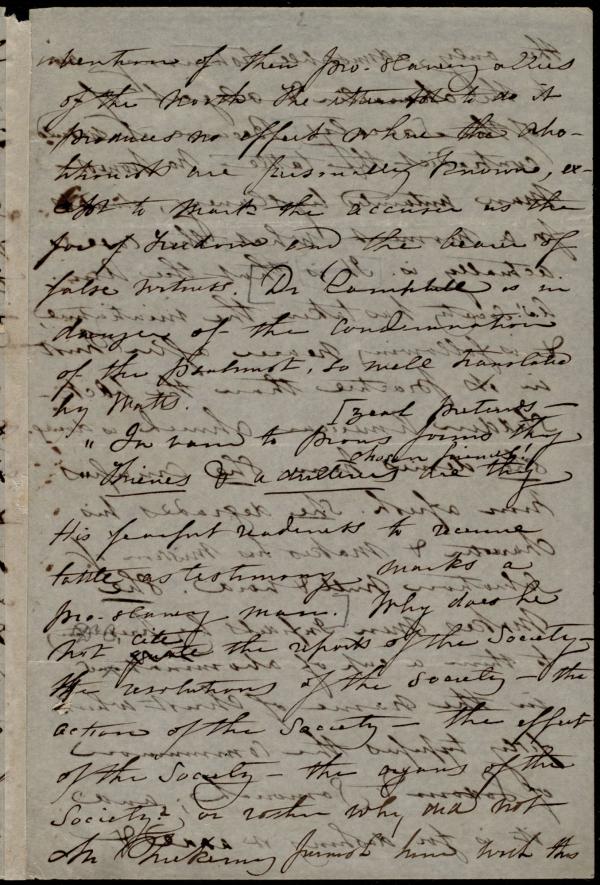 2
invention of their pro-slavery allies
of the North. The attempt to do it
produces no effect where the Abo-
litionists are personally known, ex-
cept to mark the accuser as the
foe of Freedom and the bearer of
false witness. [Dr Campbell is in
danger of the condemnation
of the Psalmist, so well translated
by Watts.
[zeal pretends—
"In vain to pious forms thy
chosen friends!
"Thieves & adulterers are thy
His fearful readiness to receive
tattle as testimony marks a
pro-slavery man.] Why does he
not cite the reports of the Society—
the resolutions of the Society — the
action of the Society — the effect
of the Society — the organs of the
Society? or rather why did not
Mr Pickering furnish him with this